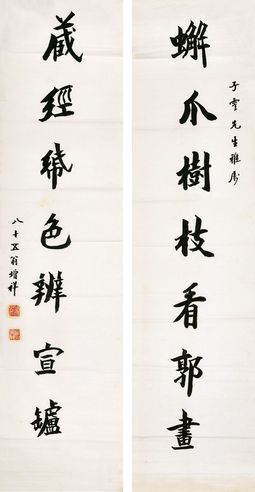 蠏爪樹枝看郭畫
子雲先生雅属
藏經帋色辨宣罏
八十五翁增祥